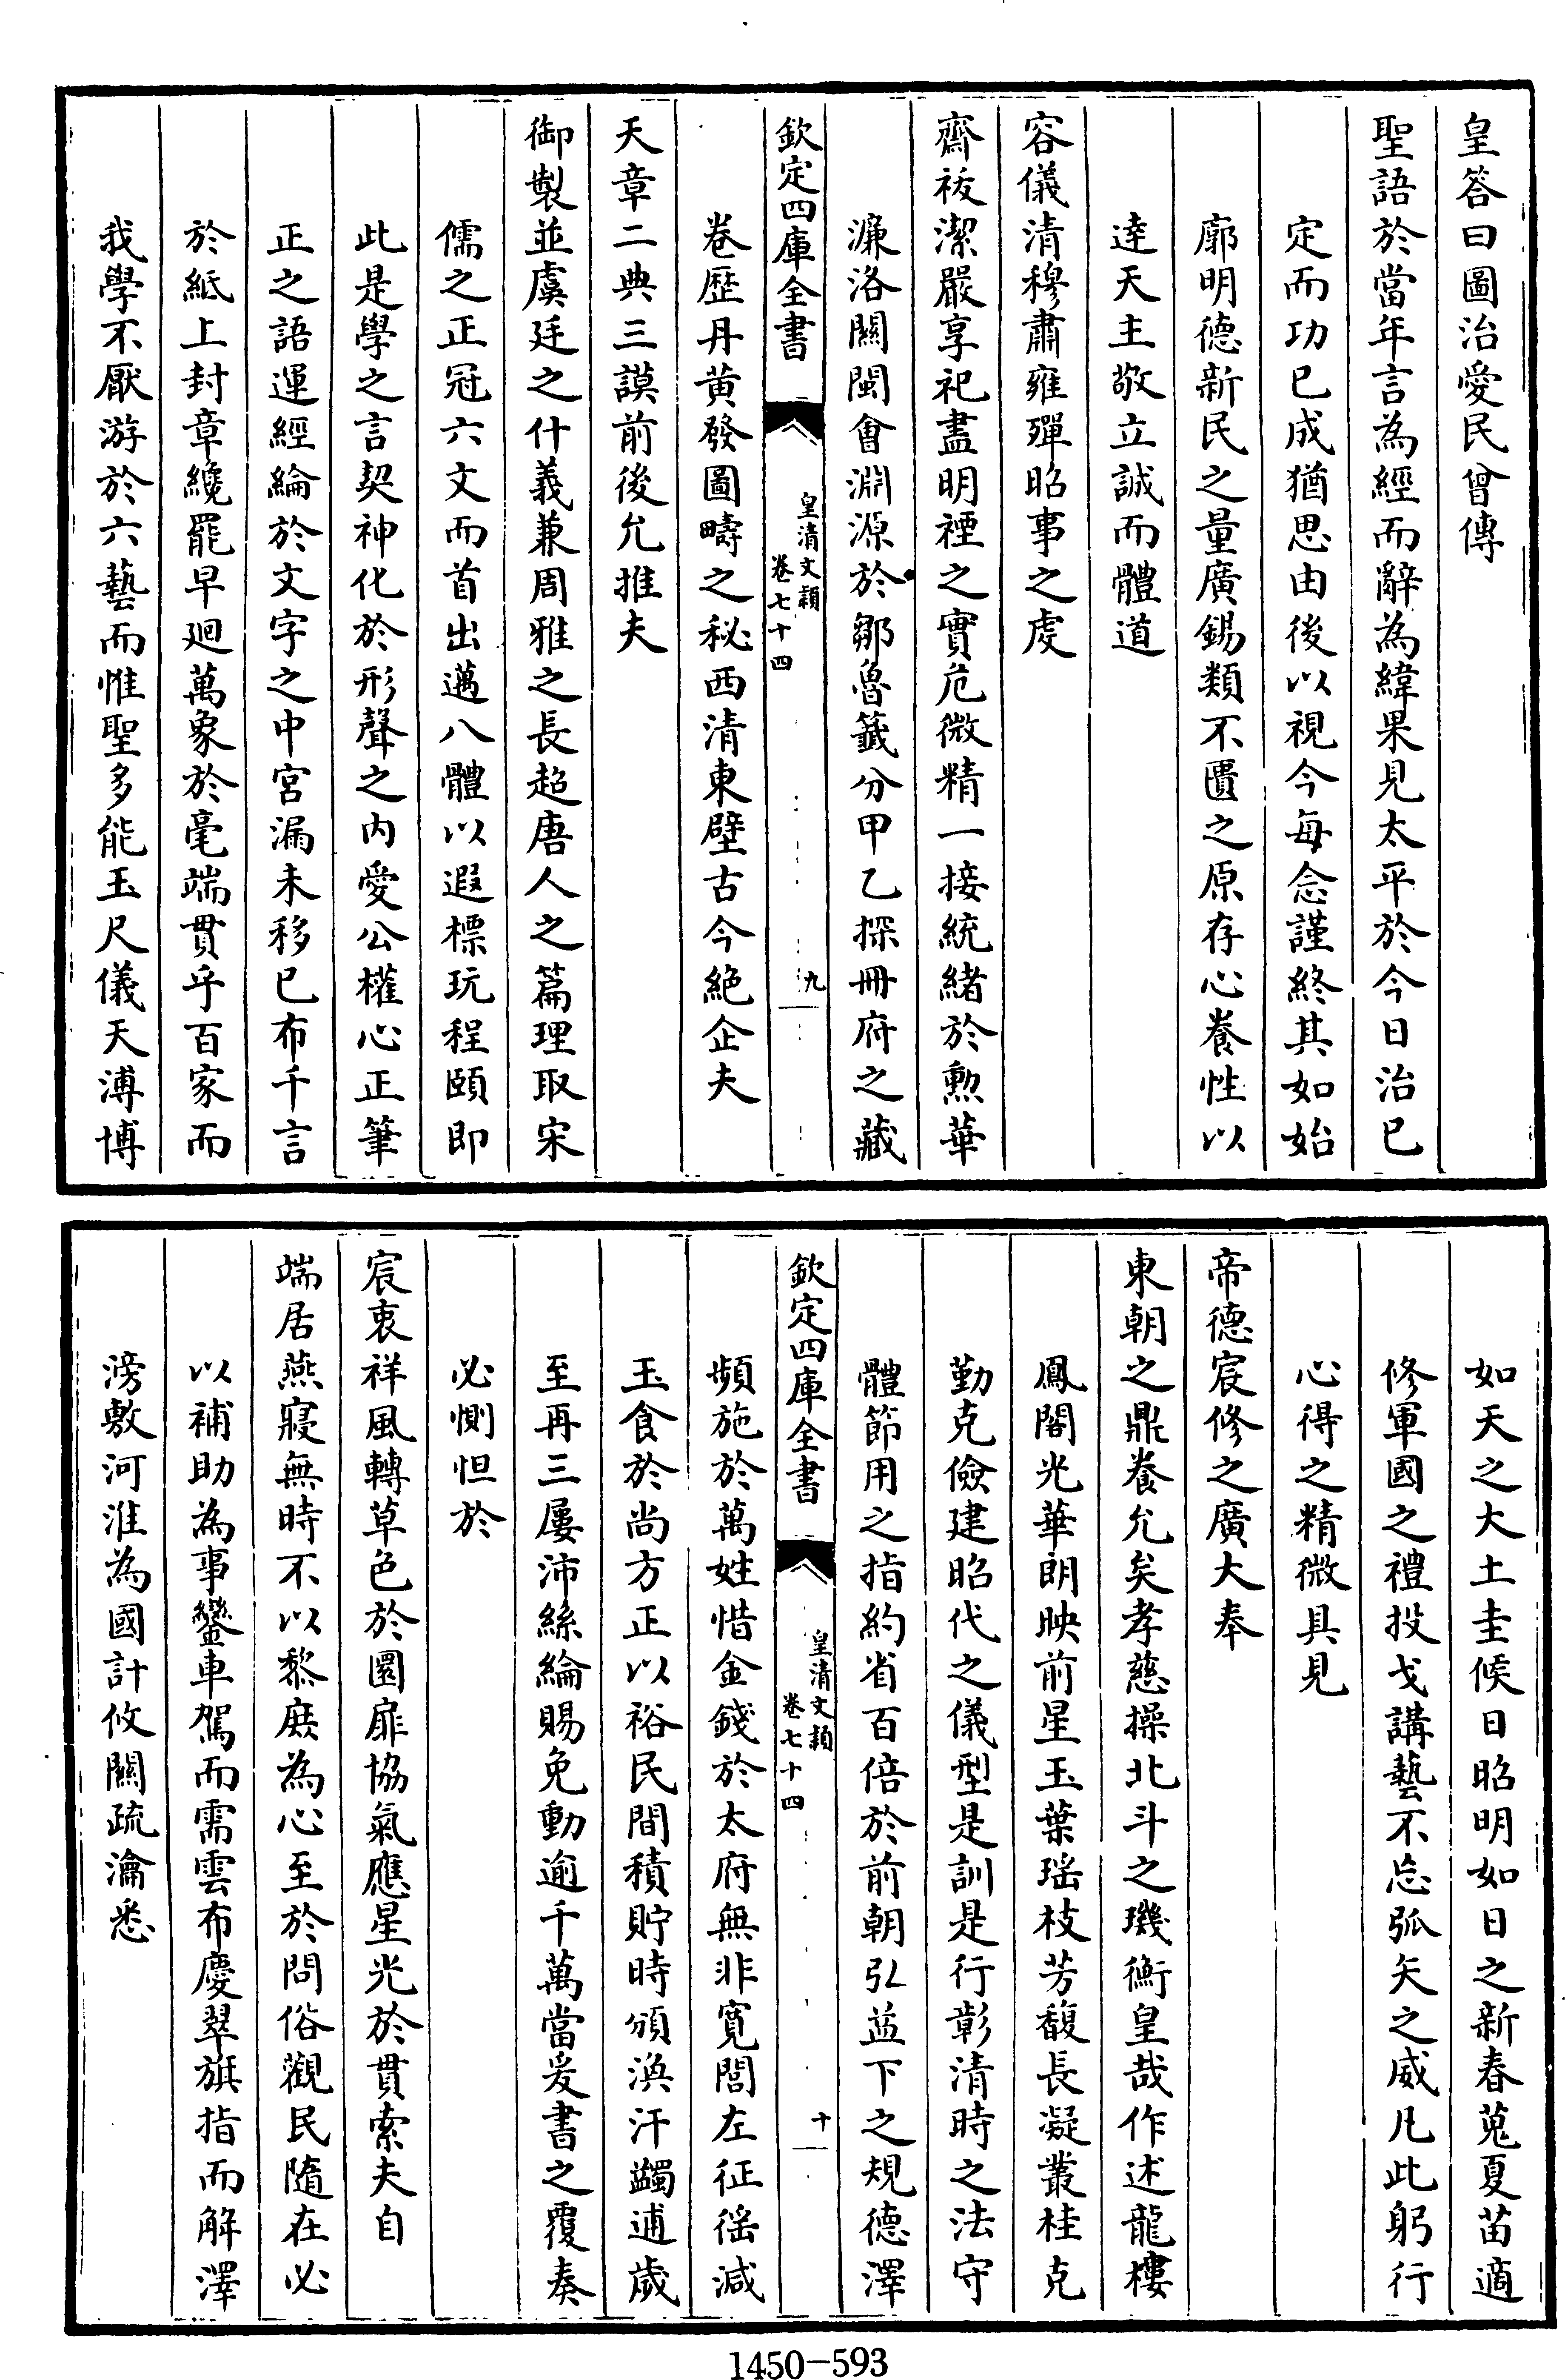 皇答曰圖治愛民曾傳
聖語於當年言為經而辭為緯果見太平於今日治已
定而功已成猶思由後以視今每念謹終其如始
廓明德新民之量廣錫類不匱之原存心養性以
達天主敬立誠而體道
容儀清穆肅雍殫昭事之虔
齋祓潔嚴享祀盡明禋之實危微精一接統緒於勲華
濂洛關閩會淵源於鄒魯籤分甲乙探冊府之藏
欽定四庫全書
皇清文穎
卷七十四
九
卷歷丹黄發圖疇之秘西清東壁古今絶企夫
天章二典三謨前後允推夫
御製並虞廷之什義兼周雅之長超唐人之篇理取宋
儒之正冠六文而首出邁八體以遐標玩程頤即
此是學之言契神化於形聲之内愛公權心正筆
正之語運經綸於文字之中宮漏未移已布千言
於紙上封章纔罷早廻萬象於毫端貫乎百家而
我學不厭游於六藝而惟聖多能玉尺儀天溥博
如天之大土圭候日昭明如日之新春蒐夏苗適
修軍國之禮投戈講藝不忘弧矢之威凡此躬行
心得之精微具見
帝德宸修之廣大奉
東朝之鼎養允矣孝慈操北斗之璣衡皇哉作述龍樓
鳳閣光華朗映前星玉葉瑶枝芳馥長凝叢桂克
勤克儉建昭代之儀型是訓是行彰清時之法守
體節用之指約省百倍於前朝弘益下之規德澤
欽定四庫全書
皇清文穎
卷七十四
十
頻施於萬姓惜金錢於太府無非寛閭左征徭減
玉食於尚方正以裕民間積貯時頒渙汗蠲逋歲
至再三屢沛絲綸賜免動逾千萬當爰書之覆奏
必惻怛於
宸衷祥風轉草色於圜扉協氣應星光於貫索夫自
端居燕寢無時不以黎庶為心至於問俗觀民隨在必
以補助為事鑾車駕而需雲布慶翠旗指而解澤
滂敷河淮為國計攸關疏瀹悉
1450-593